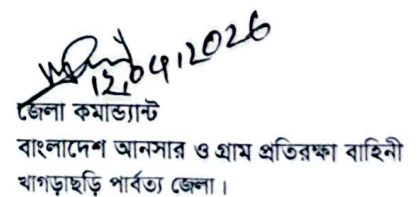 12.04.2026
জেলা কমান্ড্যান্ট
বাংলাদেশ আনসার ও গ্রাম প্রতিরক্ষা বাহিনী
খাগড়াছড়ি পার্বত্য জেলা।